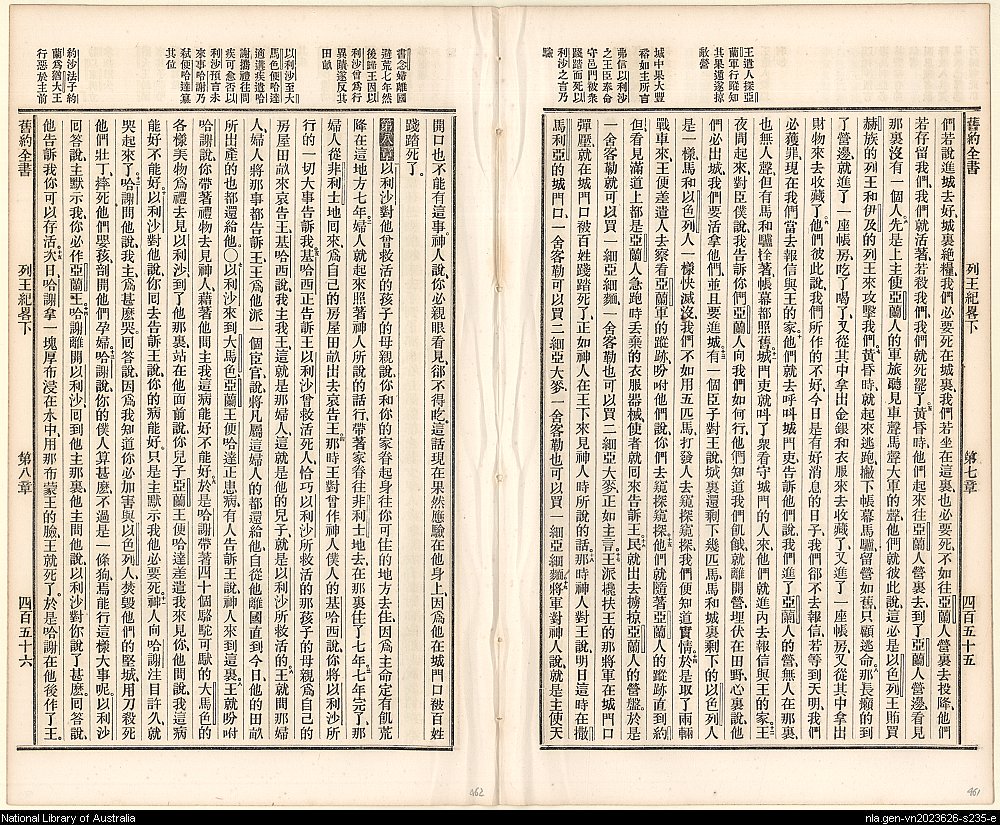 王遣人探亞
蘭軍行蹤知
其果遁遂掠
敵營
城中果大豐
裕如主所言
弗信以利沙
之王臣奉命
守邑門被衆
踐踏而死以
利沙之言乃
驗
舊約全書 列王紀畧下 第七章 四百五十五
們若說進城去好、城裏絕糧、我們必要死在城裏、我們若坐在這裏也必要死、不如往亞蘭人營裏去投降他們、
若存留我們、我們就活著、若殺我們、我們就死罷了。黃昏時、他們起來往亞蘭人營裏去、到了亞蘭人營邊、看見
那裏沒有一個人。先是上主使亞蘭人的軍旅聽見車聲馬聲大軍的聲、他們就彼此說、這必是以色列王賄買
赫族的列王和伊及的列王來攻擊我們。黃昏時、就起來逃跑、撇下帳幕馬驢、留營如舊、只顧逃命。那長癩的到
了營邊、就進了一座帳房、吃了喝了、又從其中拿出金銀和衣服來、去收藏了、又進了一座帳房、又從其中拿出
財物來、去收藏了。他們彼此說、我們所作的不好、今日是有好消息的日子、我們卻不去報信、若等到天明、我們
必獲罪、現在我們當去報信與王的家。他們就去呼叫城門吏告訴他們說、我們進了亞蘭人的營、無人在那裏、
也無人聲、但有馬和驢拴著、帳幕都照舊。城門吏就叫了衆看守城門的人來、他們就進內去報信與王的家。王
夜間起來、對臣僕說、我告訴你們亞蘭人向我們如何行、他們知道我們飢餓、就離開營、埋伏在田野、心裏說、他
們必出城、我們要活拿他們、並且要進城。有一個臣子對王說、城裏還剩下幾匹馬、馬和城裏剩下的以色列人
是一樣、馬和以色列人一樣快滅沒、我們不如用五匹馬、打發人去窺探窺探、我們便知道實情。於是取了兩輛
戰車來、王便差遣人去察看亞蘭軍的蹤跡、吩咐他們說、你們去窺探窺探。他們就隨著亞蘭人的蹤跡、直到約
但、看見滿道上都是亞蘭人急跑時丟棄的衣服器械、使者就回來告訴王。民就出去擄掠亞蘭人的營盤、於是
一舍客勒就可以買一細亞細麵、一舍客勒也可以買二細亞大麥、正如主言。王派攙扶王的那將軍在城門口
彈壓、就在城門口被百姓踐踏死了、正如神人在王下來見神人時所說的話。那時神人對王說、明日這時在撒
馬利亞的城門口、一舍客勒可以買二細亞大麥、一舍客勒也可以買一細亞細麵。將軍對神人說、就是主使天
書念婦離國
避荒七年然
後歸王因以
利沙曾爲行
異蹟遂反其
田畝
以利沙至大
馬色便哈達
適遘疾遣哈
謝攜禮往問
疾可愈否以
利沙預言未
來事哈謝乃
弒便哈達篡
其位
約沙法子約
蘭爲猶大王
行惡於主前
開口也不能有這事、神人說、你必親眼看見、卻不得吃。這話現在果然應驗在他身上、因爲他在城門口被百姓
踐踏死了。
第八章以利沙對他曾救活的孩子的母親說、你和你的家眷起身往你可住的地方去住、因爲主命定有飢荒
降在這地方七年。婦人就起來照著神人所說的話行、帶著家眷往非利士地去、在那裏住了七年。七年完了、那
婦人從非利士地回來、爲自己的房屋田畝出去哀告王。那時王對曾作神人僕人的基哈西說、你將以利沙所
行的一切大事告訴我。基哈西正告訴王以利沙曾救活死人、恰巧以利沙所救活的那孩子的母親爲自己的
房屋田畝來哀告王、基哈西說、我主我王、這就是那婦人、這就是他的兒子、就是以利沙所救活的。王就問那婦
人、婦人將那事都告訴王、王爲他派一個臣官說、將凡屬這婦人的都還給他、自從他離國直到今日、他的田畝
所出產的、也都還給他。○以利沙來到大馬色、亞蘭王便哈達正患病、有人告訴王說、神人來到這裏。王就吩咐
哈謝說、你帶著禮物去見神人、藉著他問主、我這病能好不能好。於是哈謝帶著四十個駱駝可馱的大馬色的
各樣美物爲禮、去見以利沙、到了他那裏、站在他面前說、你兒子亞蘭王便哈達差遣我來見你、他問說、我這病
能好不能好。以利沙對他說、你回去告訴王說、你的病能好、只是主默示我他必要死。神人向哈謝注目許久、就
哭起來了。哈謝問他說、我主、爲甚麼哭、回答說、因爲我知道你必加害與以色列人、焚毀他們的堅城、用刀殺死
他們壯丁、摔死他們嬰孩、剖開他們孕婦。哈謝說、你的僕人算甚麼、不過是一條狗、焉能行這樣大事呢、以利沙
回答說、主默示我你必作亞蘭王。哈謝離開以利沙回到他主那裏、他主問他說、以利沙對你說了甚麼、回答說、
他告訴我你可以存活。次日、哈謝拿一塊厚布浸在水中、用那布蒙王的臉、王就死了。於是哈謝在他後作了王。
舊約全書 列王紀畧下 第八章 四百五十六
462
461
National Library of Australia
nla.gen-vn2023626-s235-e